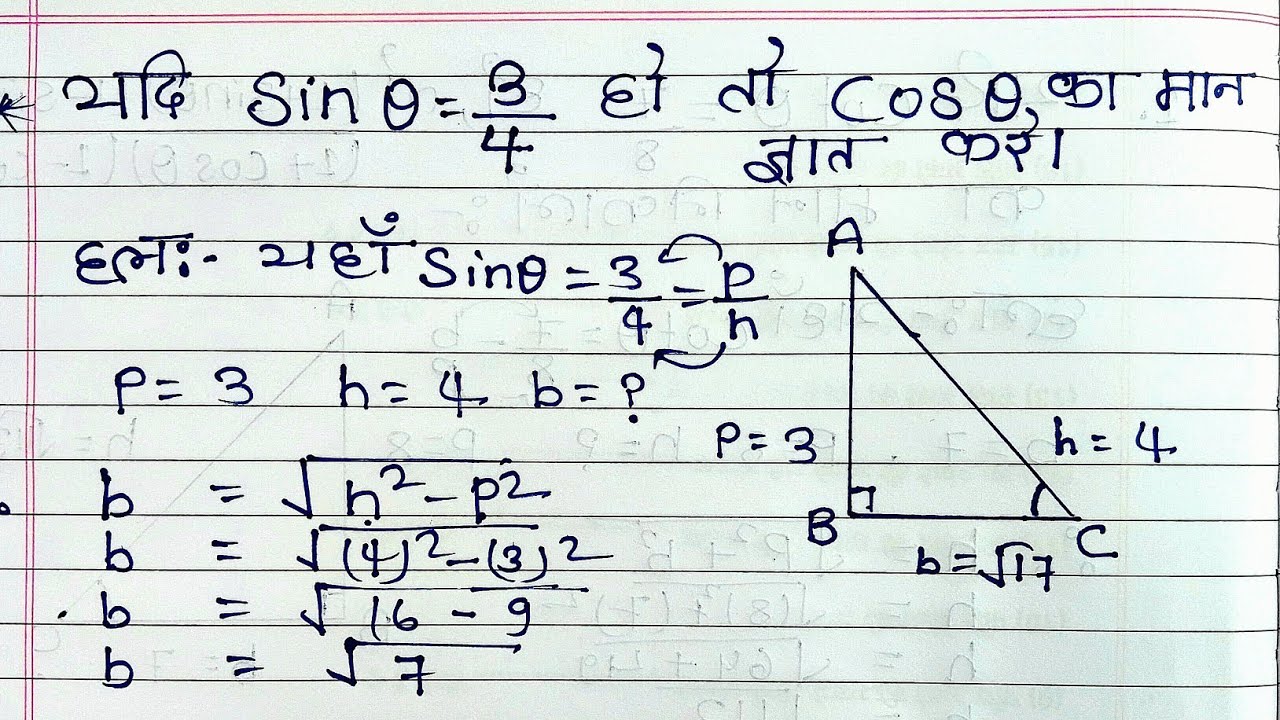 यदि sinθ = 3/4 हो तो cosθ का मान
ज्ञात करो।
हलः- यहाँ sinθ = 3/4 = p/h
P = 3 h = 4 b = ?
b = √h² - p²
b = √(4)² - (3)²
b = √16 - 9
b = √7
A
P = 3
h = 4
B
C
b = √17